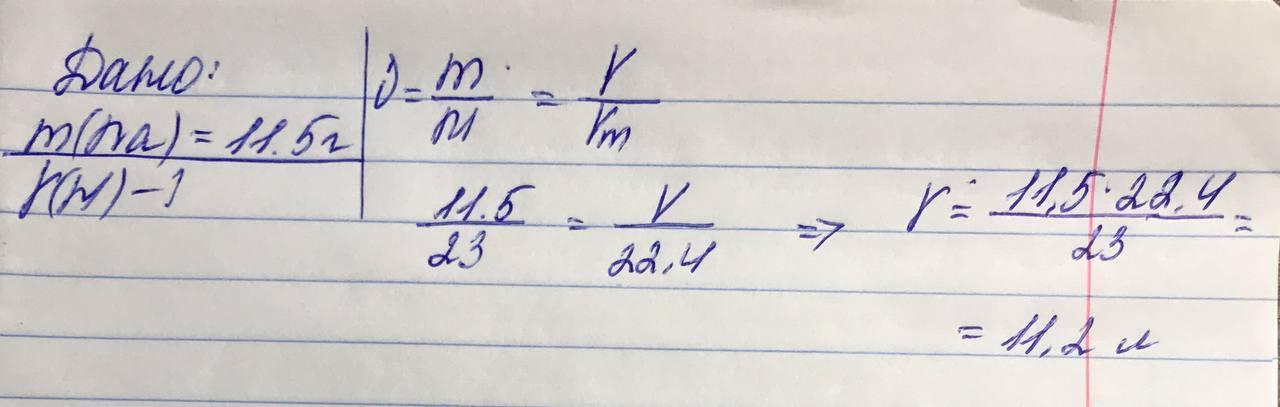 Дано:
m(Na) = 11.5г
V(H) - ?
ν = m/M = V/Vm
11.5/23 = V/22.4 => V = 11,5·22.4/23 =
= 11,2 л